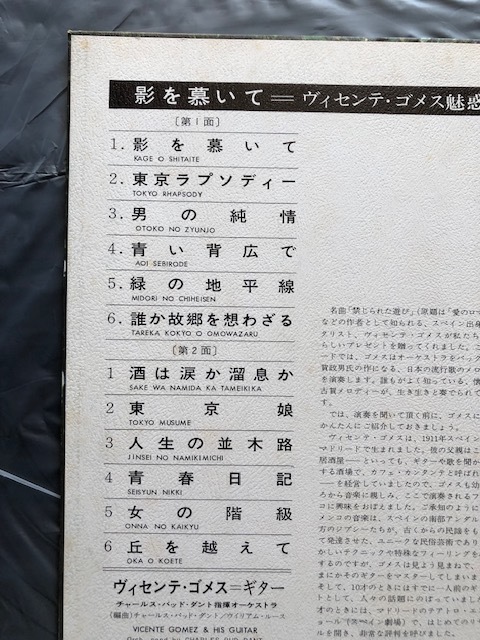 影を慕いて＝ヴィセンテ・ゴメス魅惑
〔第1面〕
1. 影を慕いて
KAGE O SHITAITE
2. 東京ラプソディー
TOKYO RHAPSODY
3. 男の純情
OTOKO NO ZYUNJO
4. 青い背広で
AOI SEBIRODE
5. 緑の地平線
MIDORI NO CHIHEISEN
6. 誰か故郷を想わざる
TAREKA KOKYO O OMOWAZARU
〔第2面〕
1 酒は涙か溜息か
SAKE WA NAMIDA KA TAMEIKIKA
2 東京娘
TOKYO MUSUME
3 人生の並木路
JINSEI NO NAMIKIMICHI
4 青春日記
SEISYUN NIKKI
5 女の階級
ONNA NO KAIKYU
6 丘を越えて
OKA O KOETE
ヴィセンテ・ゴメス＝ギター
チャールス・バッド・ダント指揮オーケストラ
(編曲)チャールス・バッド・ダント/ヴィリアム・ルース
VICENTE GOMEZ & HIS GUITAR
名曲「禁じられた遊び」(原題は「愛のロマ
などの作者として知られる、スペイン出身
タリスト、ヴィセンテ・ゴメスが私たち
らしいプレゼントを贈ってくれました。
ードでは、ゴメスはオーケストラをバック
賀政男氏の作になる、日本の流行歌のメロ
を演奏します。誰もがよく知っている、懐
古賀メロディーが、生き生きと奏でられて
す。
では、演奏を聞いて頂く前に、ゴメスに
かんたんにご紹介しておきましょう。
ヴィセンテ・ゴメスは、1911年スペイン
マドリードで生まれました。彼の父親はこ
居酒屋——といっても、ギターや歌を聞か
する酒場で、カフェ・カンタンテと呼ばれ
を経営していましたので、ゴメスも幼
ろから音楽に親しみ、ここで演奏されるフ
コに興味をおぼえました。ご承知のように
メンコの音楽は、スペインの南部アンダル
方のジプシーたちが、古くからの民謡をも
て発達させた、ユニークな民俗芸術であり
かしいテクニックや特殊なフィーリングを
するのですが、ゴメスは見よう見まねで、
まにかそのギターをマスターしてしまいま
そして、10才のときにはすでに一人前のギ
トとして、人々の話題にのぼっていました
才のときには、マドリードのテアトロ・エ
ョール(スペイン劇場)で、はじめてのリサ
ルを開き、非常な好評を呼びました。